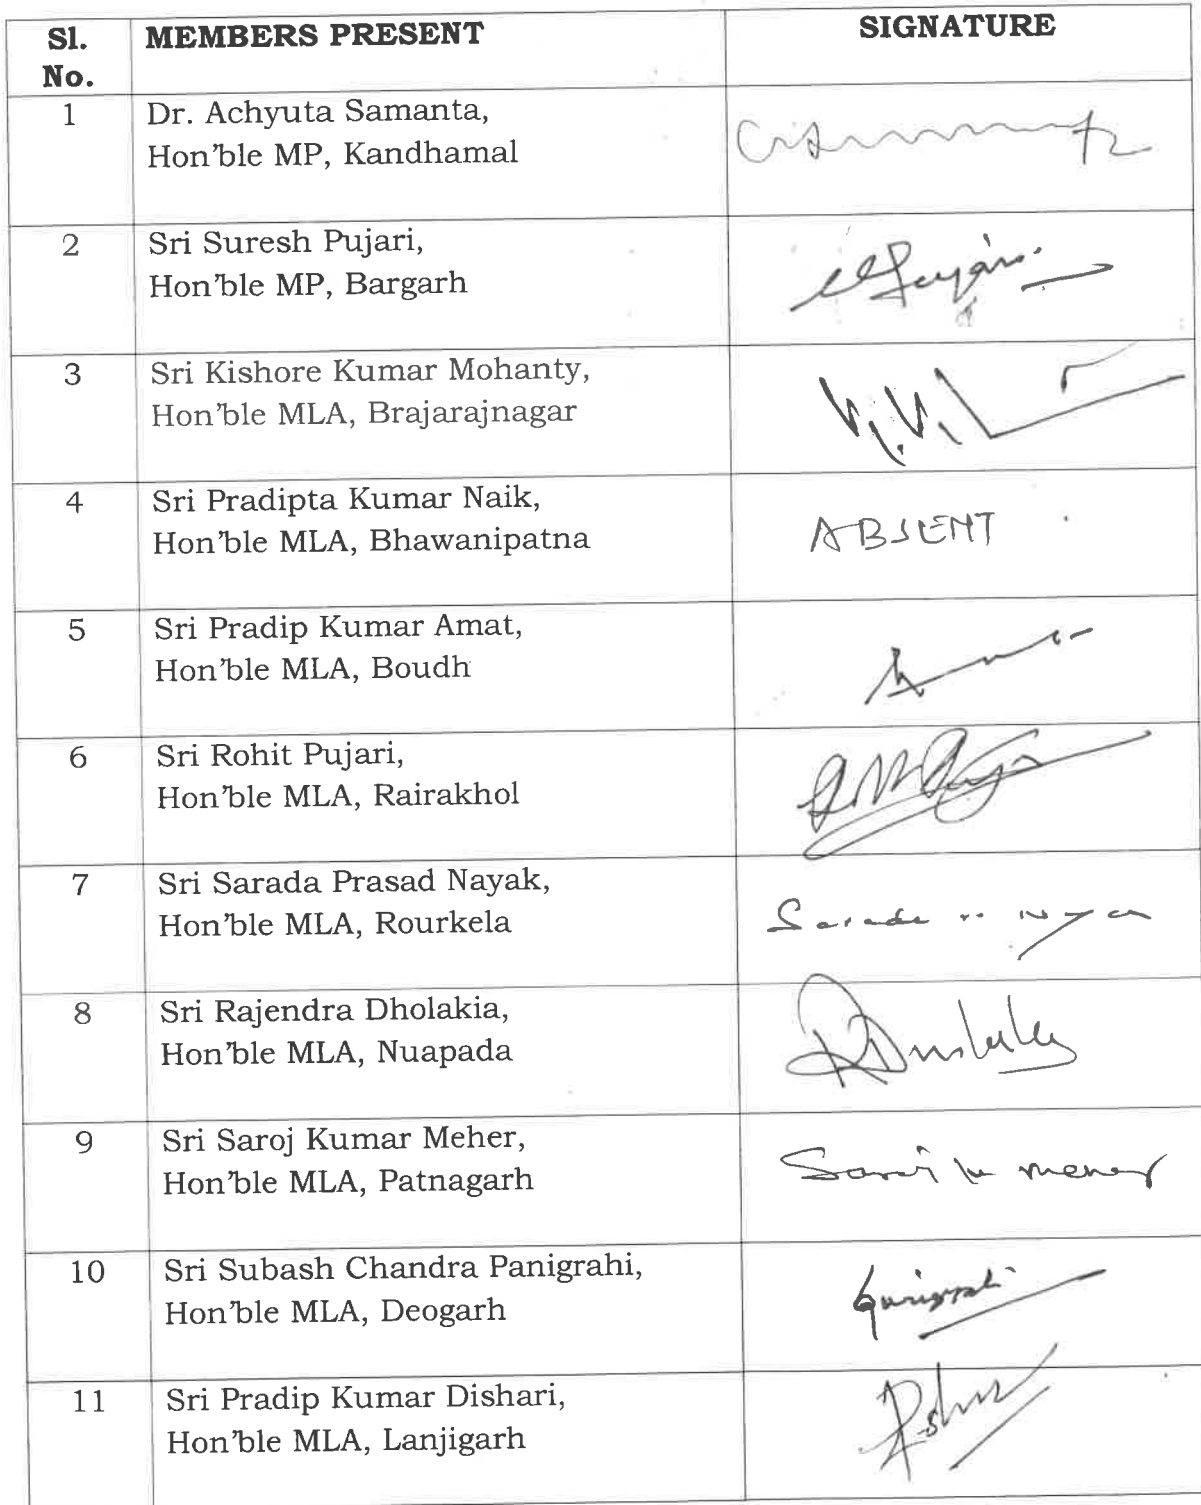 Sl. No.
MEMBERS PRESENT
SIGNATURE
1
Dr. Achyuta Samanta,
Hon'ble MP, Kandhamal
2
Sri Suresh Pujari,
Hon'ble MP, Bargarh
3
Sri Kishore Kumar Mohanty,
Hon'ble MLA, Brajarajnagar
4
Sri Pradipta Kumar Naik,
Hon'ble MLA, Bhawanipatna
ABSENT
5
Sri Pradip Kumar Amat,
Hon'ble MLA, Boudh
6
Sri Rohit Pujari,
Hon'ble MLA, Rairakhol
7
Sri Sarada Prasad Nayak,
Hon'ble MLA, Rourkela
8
Sri Rajendra Dholakia,
Hon'ble MLA, Nuapada
9
Sri Saroj Kumar Meher,
Hon'ble MLA, Patnagarh
10
Sri Subash Chandra Panigrahi,
Hon'ble MLA, Deogarh
11
Sri Pradip Kumar Dishari,
Hon'ble MLA, Lanjigarh